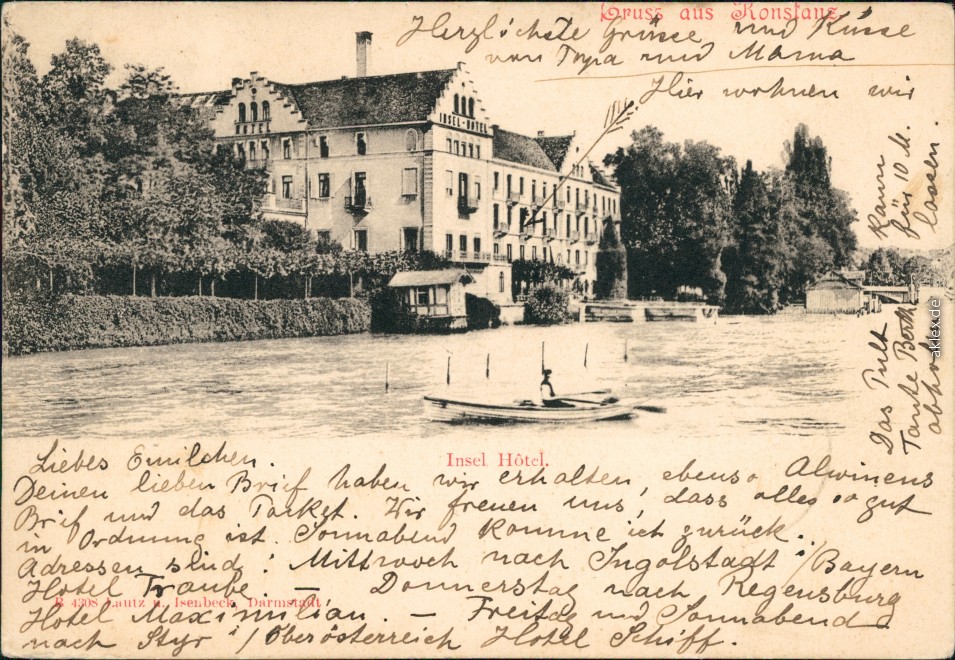 Gruss aus Konstanz
Herzlichste Grüsse und Küsse
von Papa und Mama
Hier wohnen wir
INSEL-HOTEL
Das Pult kann
Tante Berth für 10 M.
abholen lassen.
aklex.de
Insel Hôtel.
Liebes Emilchen.
Deinen lieben Brief haben wir erhalten, ebenso Alwinens
Brief und das Packet. Wir freuen uns, dass alles so gut
in Ordnung ist. Sonnabend komme ich zurück.
Adressen sind: Mittwoch nach Ingolstadt i/Bayern
Hotel Traube — Donnerstag nach Regensburg
R 4308 Lautz u. Isenbeck, Darmstadt
Hotel Maximilian. — Freitag und Sonnabend
nach Styr i/Oberösterreich Hotel Schiff.